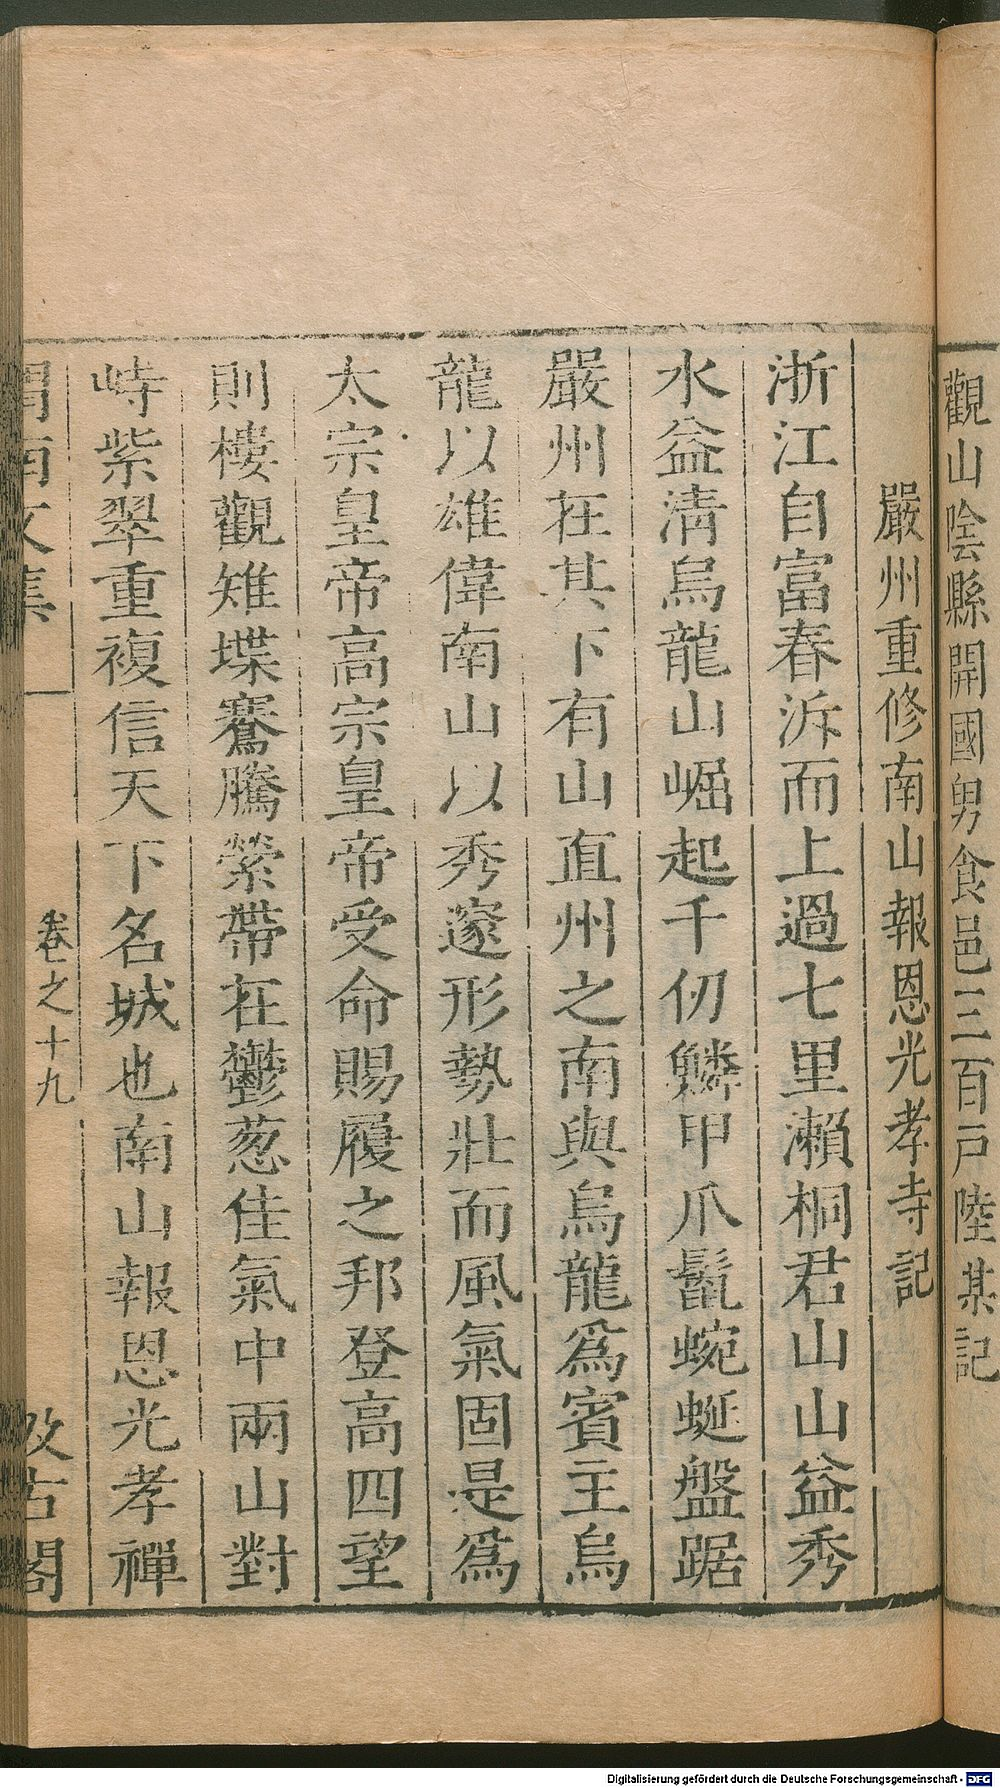 觀山陰縣開國男食邑三百戸陸某記
嚴州重修南山報恩光孝寺記
浙江自富春泝而上過七里瀨桐君山山益秀
水益淸烏龍山崛起千仞鱗甲爪鬛蜿蜒盤踞
嚴州在其下有山直州之南與烏龍爲賓主烏
龍以雄偉南山以秀邃形勢壯而風氣固是爲
太宗皇帝高宗皇帝受命賜履之邦登高四望
則樓觀雉堞騫騰縈帶在鬱葱佳氣中兩山對
峙紫翠重複信天下名城也南山報恩光孝禪
渭南文集 卷之十九 汲古閣
Digitalisierung gefördert durch die Deutsche Forschungsgemeinschaft - DFG